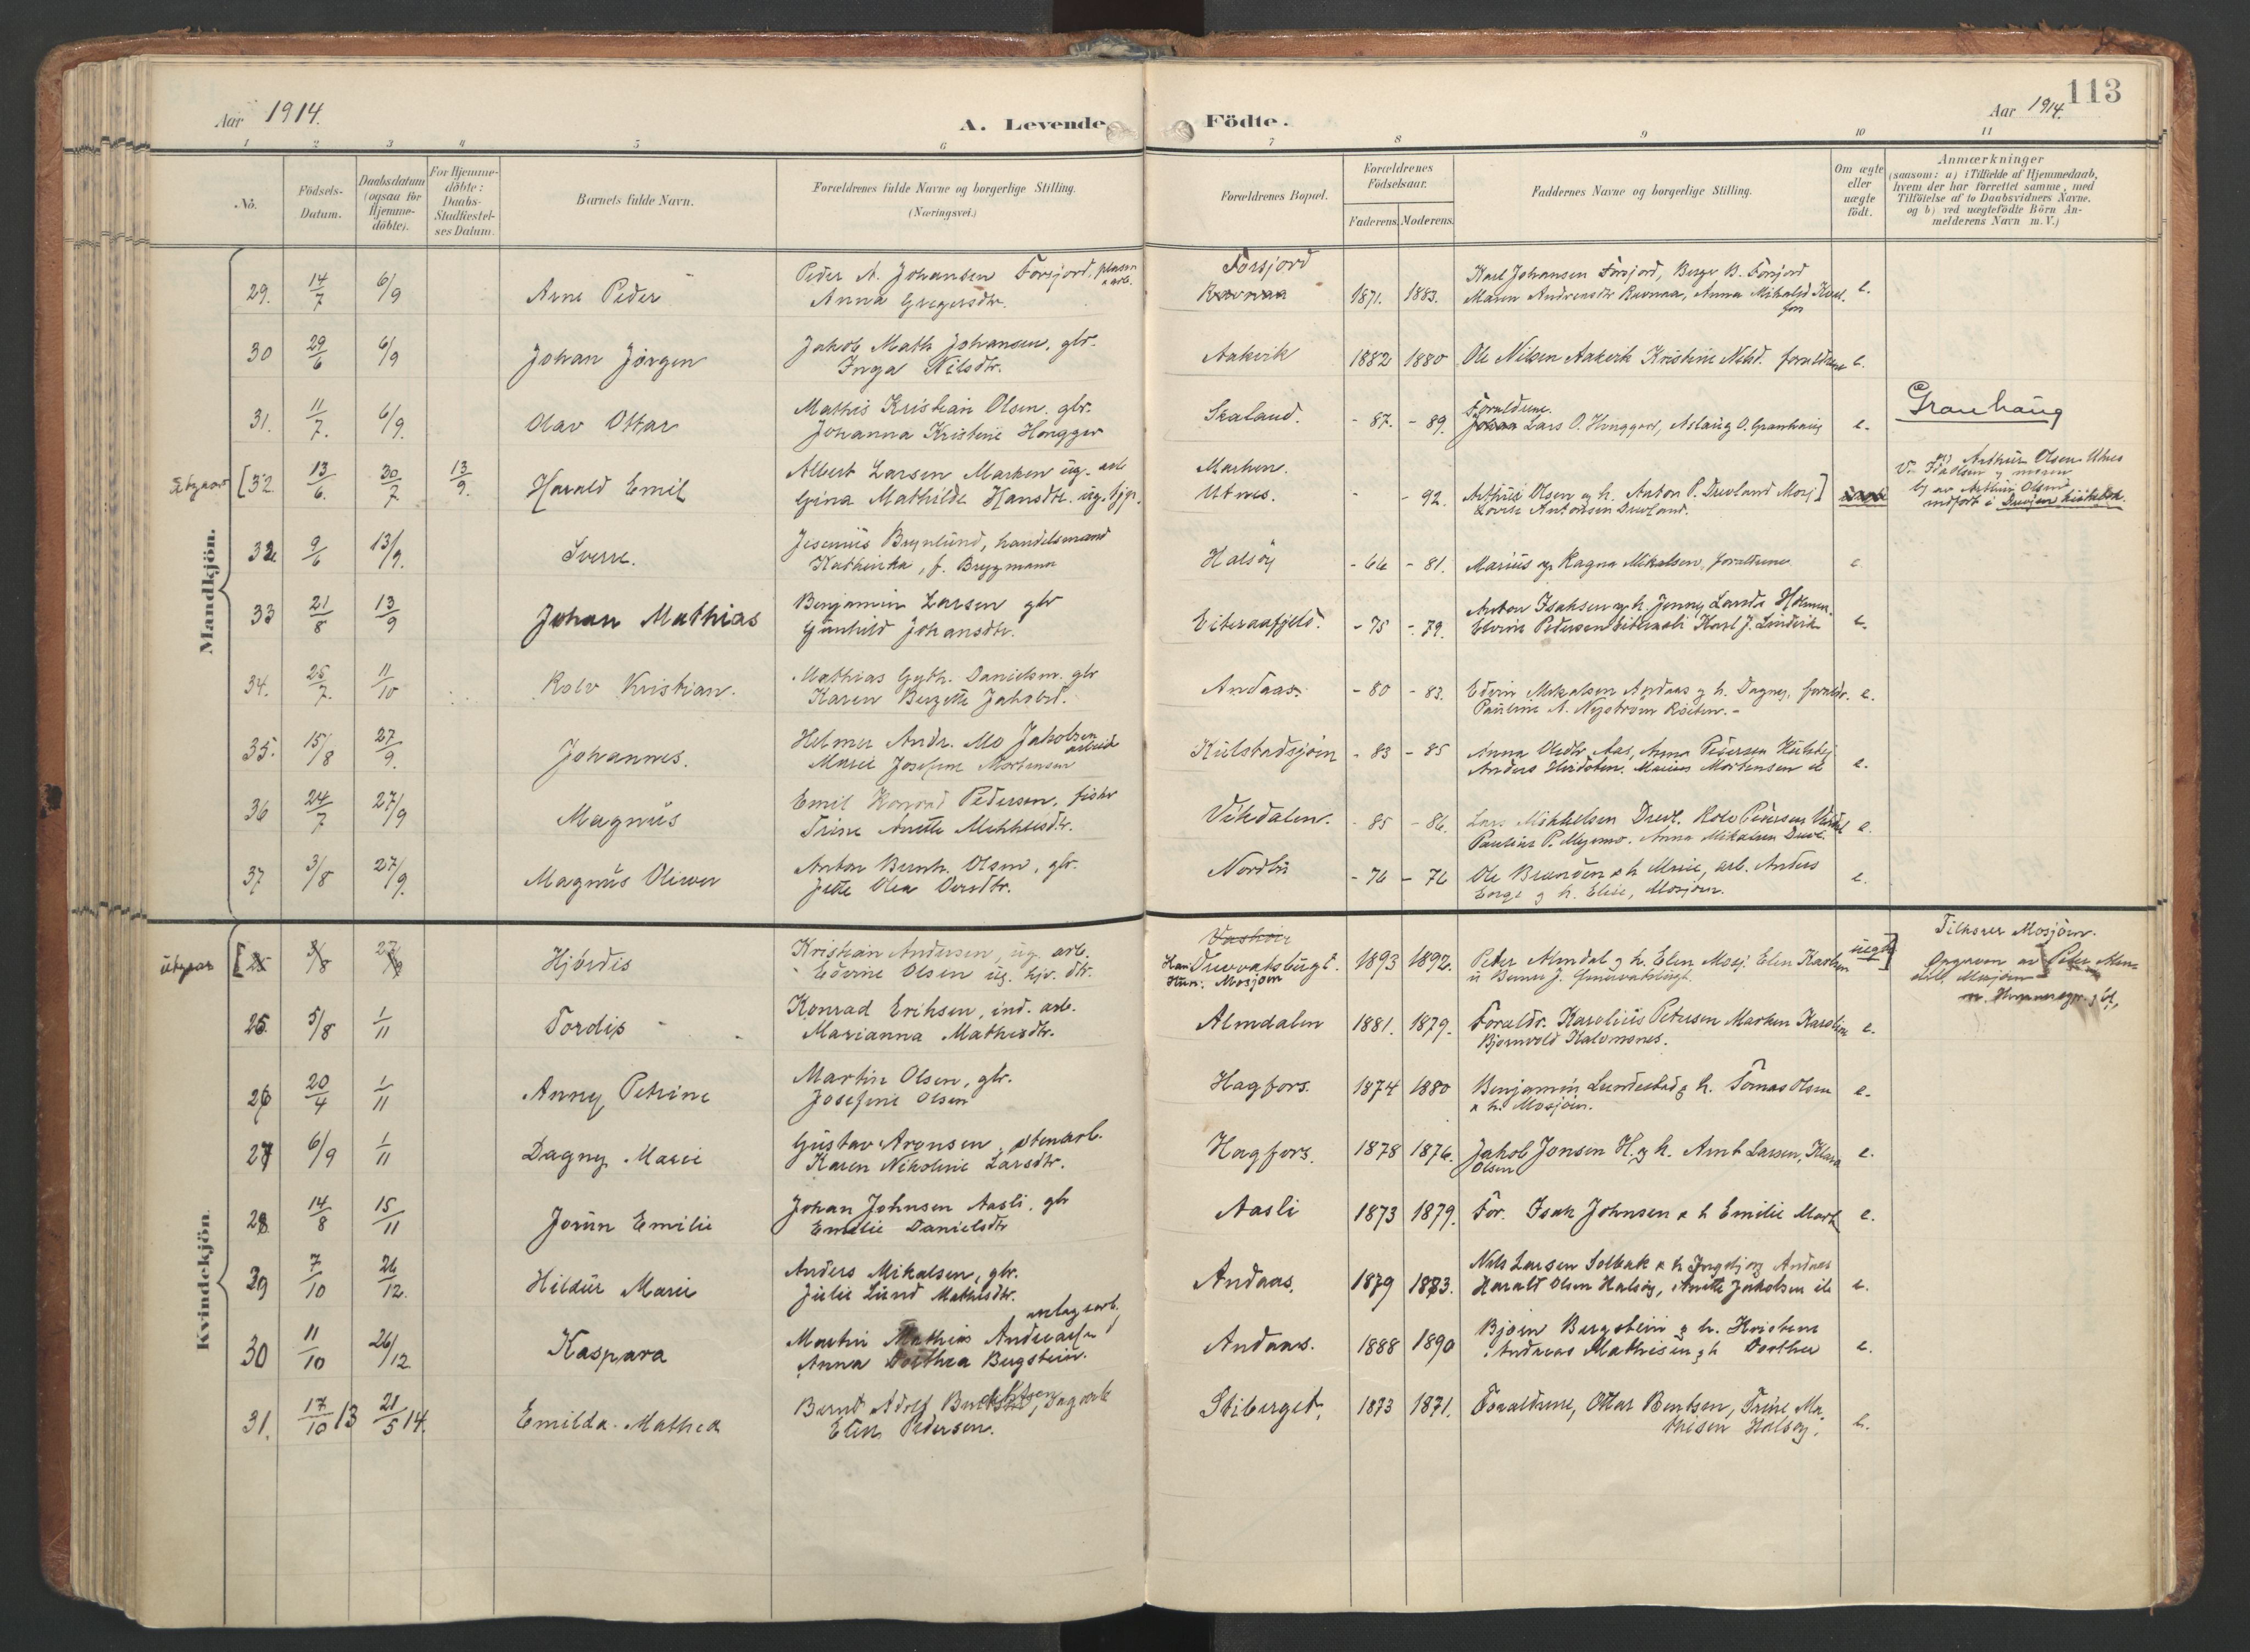 Aar 1914.
A. Levende
Födte.
Aar 1914.
113
1 2 3 4 5 6 7 8 9 10 11
No.
Födsels-
Datum.
Daabsdatum
(ogsaa for
Hjemme-
döbte).
For Hjemme-
döbte:
Daabs-
Stadfæstel-
ses Datum.
Barnets fulde Navn.
Forældrenes fulde Navne og borgerlige Stilling.
(Næringsvei.)
Forældrenes Bopæl.
Forældrenes
Födselsaar.
Faderens. Moderens.
Faddernes Navne og borgerlige Stilling.
Om ægte
eller
uægte
födt.
Anmærkninger
(saasom: a) i Tilfælde af Hjemmedaab,
hvem der har forrettet samme, med
Tilföielse af to Daabsvidners Navne,
og b) ved uægtefödte Börn An-
melderens Navn m. V.)
Mandkjön.
29. 14/7 6/9 Arne Peder
Peder A. Johansen Forsjord,
Anna Gregersdtr.
Forsjord
1871. 1883.
Karl Johansen Forsjord, Berge B. Forsjord
Maren Andreasdtr Ravnaa, Anna
e.
30 29/6 6/9 Johan Jörgen
Jakob Math Johansen, gbr.
Inga Nilsdtr.
Aakvik 1882 1880
Ole Nilsen Aakvik Kristine Nilsd. forældrene e.
31. 11/7. 6/9. Olav Ottar
Mathis Kristian Olsen. gbr.
Johanna Kristine
Skaland. - 87. - 89.
Forældrene.
Lars O. Aslaug O. Granhaug e.
Granhaug
utgaar [32. 13/6. 30/7 13/9. Harald Emil
Albert Larsen Marken ug. arb
Gina Mathilde Hansdtr. ug.
Marken.
Utnes. - - 92.
Arthur Olsen og h. Anton P. Drevland Mosj]
Lovise Antonsen Drevland.
Arthur Olsen Utnes
av Arthur Olsen
indfört i Drevjen kirkebok.
32. 9/6 13/9. Sverre.
Brynlund, handelsmand
Kathinka, f. Brygmann
Halsöy - 66 - 81.
Marius og Ragna Mikalsen, forældrene e.
33 21/8 13/9 Johan Mathias
Benjamin Larsen gbr
Gunhild Johansdtr.
Eiteraafjeld. - 75 - 79.
Anton Isaksen og h. Jenny
Pedersen Karl J. e.
34. 25/7. 11/10 Rolv Kristian.
Mathias Danielsen. gbr
Karen Bergette Jakobsd.
Andaas. - 80 - 83.
Edvin Mikalsen Andaas g h. Dagny, forældr. e.
Pauline A. Nyström
35. 15/8 27/9. Johannes.
Helmer Andr. Mo Jakobsen
Marie Josefine Mortensen
Kulstadsjöen - 83 - 85
Anna Olsdtr Aas, Anna Pedersen
Anders Marius Mortensen e.
36 24/7 27/9 Magnus
Emil Konrad Pedersen, fisker
Trine Anette Mikkelsdtr.
Vikdalen. - 85 - 86.
Lars Mikkelsen Drevl. Rolv Pedersen
Paulius P. Anna Mikalsen Drevl. e.
37 3/8 27/9. Magnus Oliver
Anton Bernh. Olsen, gbr.
Jette Olea
Nordbu - 76 - 76
Ole Brænden & h Marie, arb. Anders
g h. Elise, Mosjöen. e.
Kvindekjön.
utgaar [25 3/8 27/9 Hjördis
Kristian Andersen, ug. arb.
Edvine Olsen ug.
Han: Drevvatsbugt.
Hun: Mosjöen
1893 1892.
Peder Almdal g h. Elen Mosj. Elen Karlsen
uegte]
Tilhörer Mosjöen.
Opgaven av Peder Alm-
dal, Mosjöen
25. 5/8 1/11 Tordis
Konrad Eriksen, ind. arb.
Marianna Mathisdtr.
Almdalen 1881. 1879.
Forældr. Karolius Petersen Marken
Bjornvold e.
26 20/4 1/11 Anny Petrine
Martin Olsen, gbr.
Josefine Olsen
Hagfors. 1874 1880
Benjamin Lundestad g h. Tomas Olsen
& h. Mosjöen. e.
27 6/9 1/11 Dagny Marie
Gustav Aronsen, stenarb.
Karen Nikoline Larsdtr.
Hagfors. 1878 1876.
Jakob Jonsen H. g h. Arnt Larsen, Klara
Olsen e.
28 14/8 15/11 Jorun Emilie
Johan Johnsen Aasli, gbr
Emilie Danielsdtr
Aasli 1873 1879.
For. Isak Johnsen & h Emilie e.
29 7/10 26/12. Hildur Marie
Anders Mikalsen, gbr.
Julie Lund Mathisdtr.
Andaas, 1879 1883.
Nils Larsen Solbak & h Ingebjorg Andaas
Harald Olsen Halsöy, Anette Jakobsen e.
30 11/10 26/12 Kaspara
Martin Mathias Andreassen, anlagsarb.
Anna Dorthea Bugstein.
Andaas. 1888 1890
Bjorn Bergstein g h. Kristine
Andreas Mathisen g h Dorthea e.
31. 17/10 13 21/5 14. Emilda Mathea
Bernt Adolf Dagarb
Elen Pedersen.
Stiberget, 1873 1871.
Forældrene, Ottar Bentsen, Trine Ma-
thisen Halsöy. e.